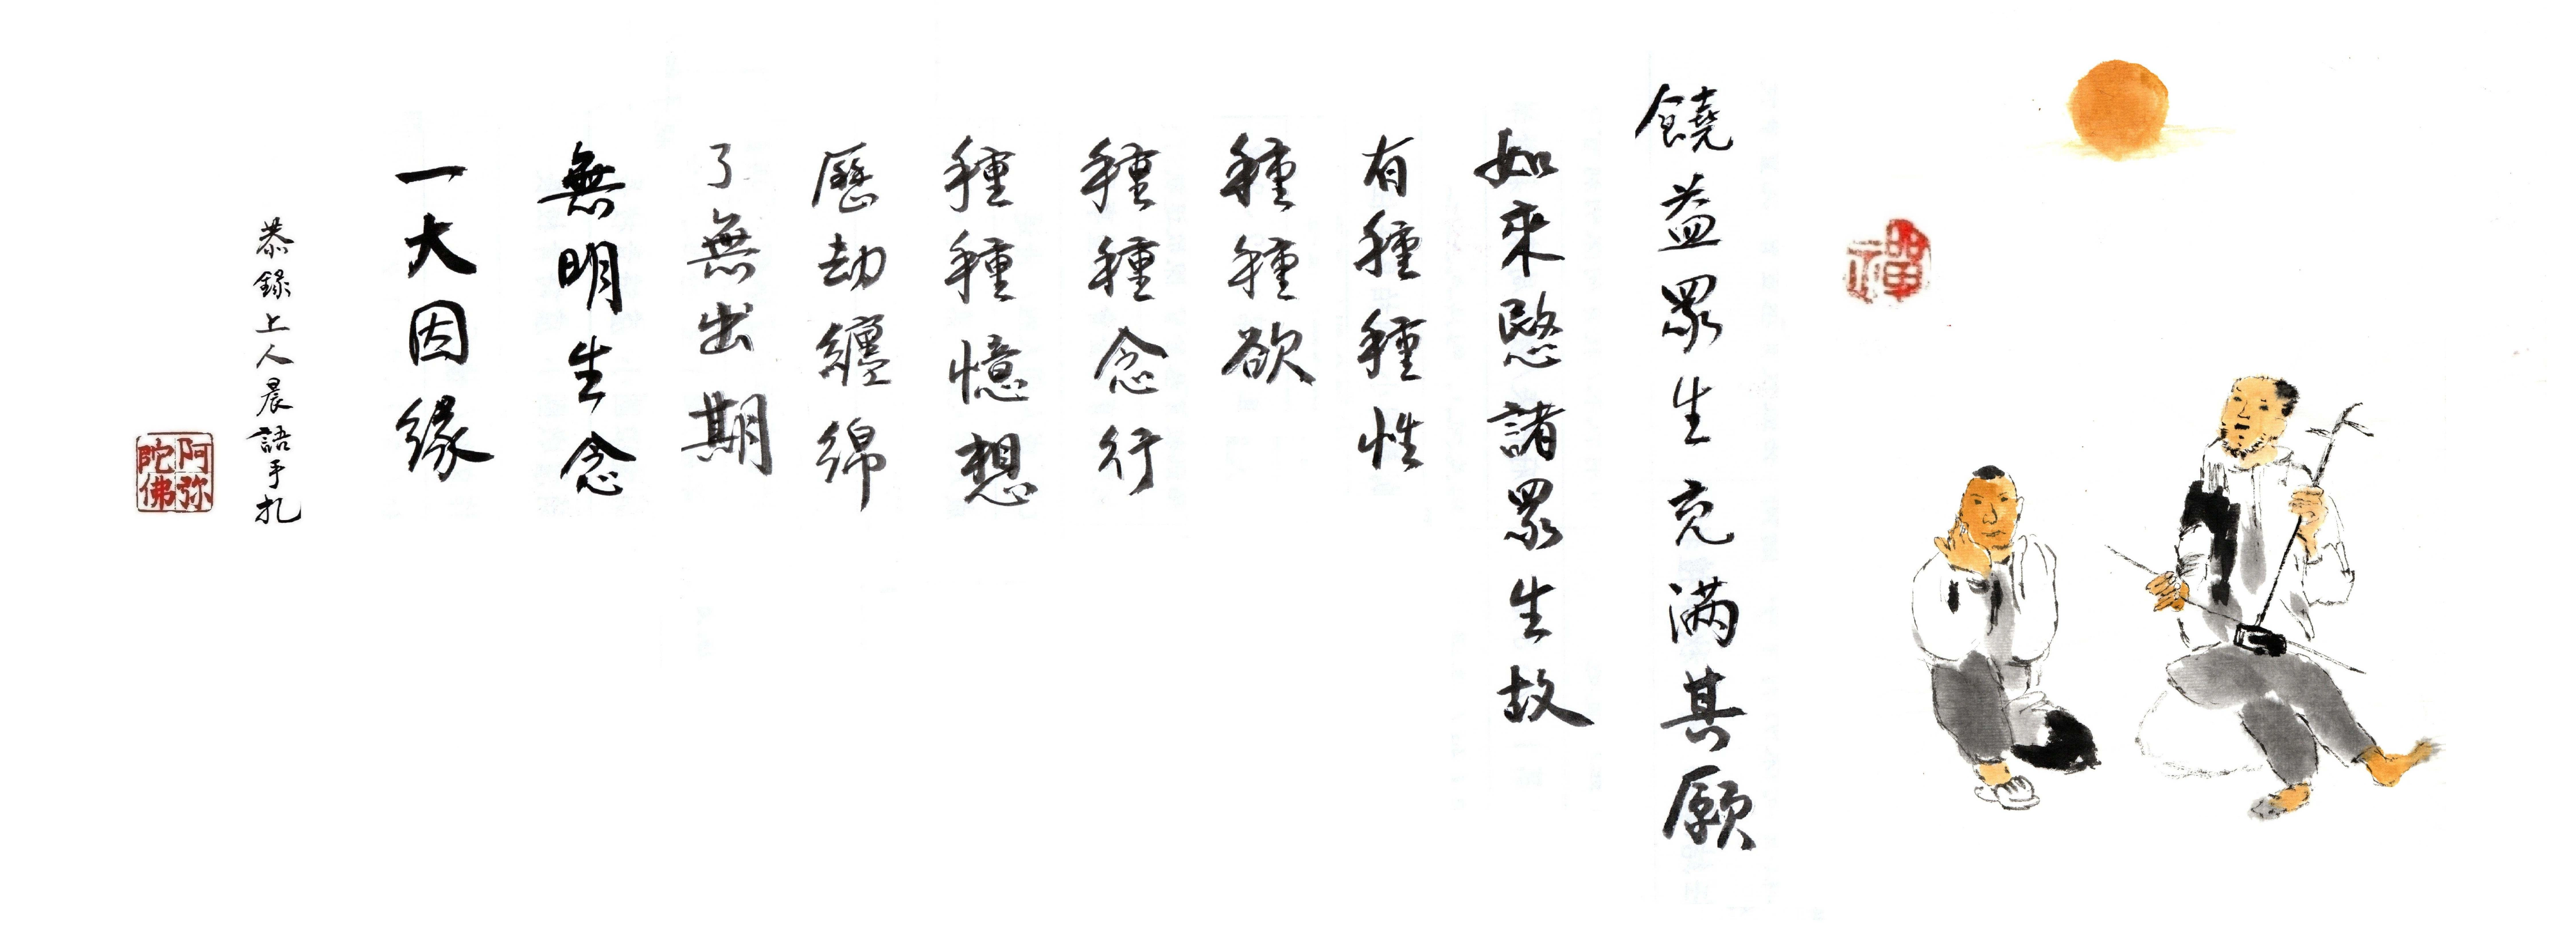 禪
饒益眾生充滿其願
如來愍諸眾生故
有種種性
種種欲
種種念行
種種憶想
歷劫纏綿
了無出期
無明生念
一大因緣
恭錄上人晨語手札
阿弥
陀佛